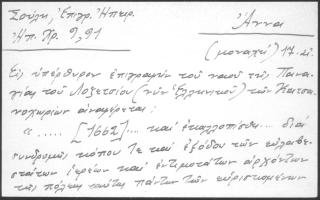 Σούλη, Ἐπιγρ. Ἠπειρ.
Ἠπ. Χρ. 9, 91
Ἄννα
(μοναχή) 17. αἰ.
Εἰς ὑπέρθυρον ἐπιγραφὴν τοῦ ναοῦ τῆς Παναγίας τοῦ Λοζετσίου (νῦν Ἑλληνικοῦ) τῶν Κατσανοχωρίων ἀναφέρεται:
« ..... [1662] ... καὶ ἐκαλλοπίσθη... διὰ
συνδρομῆς κόπου τε καὶ ἐξόδου τῶν εὐλαβεστάτων ἱερέων καὶ ἐντιμοτάτων ἀρχόντων
τῆς πόλεως ταύτης πάντων τῶν εὑρισκομένων